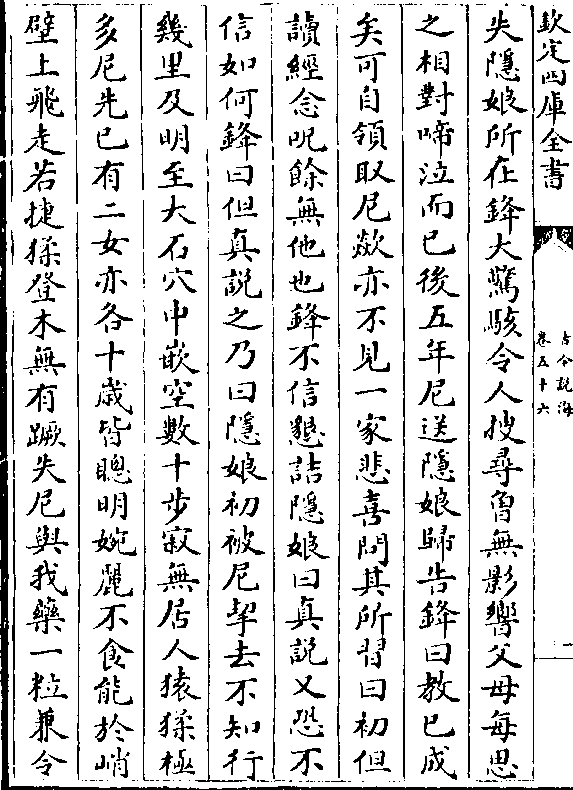 欽定四庫全書
古今說海
卷五十六
一
失隱娘所在鋒大驚駭令人搜尋曾無影響父母每思
之相對啼泣而已後五年尼送隱娘歸告鋒曰教已成
矣可自領取尼歘亦不見一家悲喜問其所習曰初但
讀經念呪餘無他也鋒不信懇詰隱娘曰真說又恐不
信如何鋒曰但真說之乃曰隱娘初被尼挈去不知行
幾里及明至大石穴中嵌空數十步寂無居人猿猱極
多尼先已有二女亦各十歲皆聰明婉麗不食能於峭
壁上飛走若捷猱登木無有蹶失尼與我藥一粒兼令